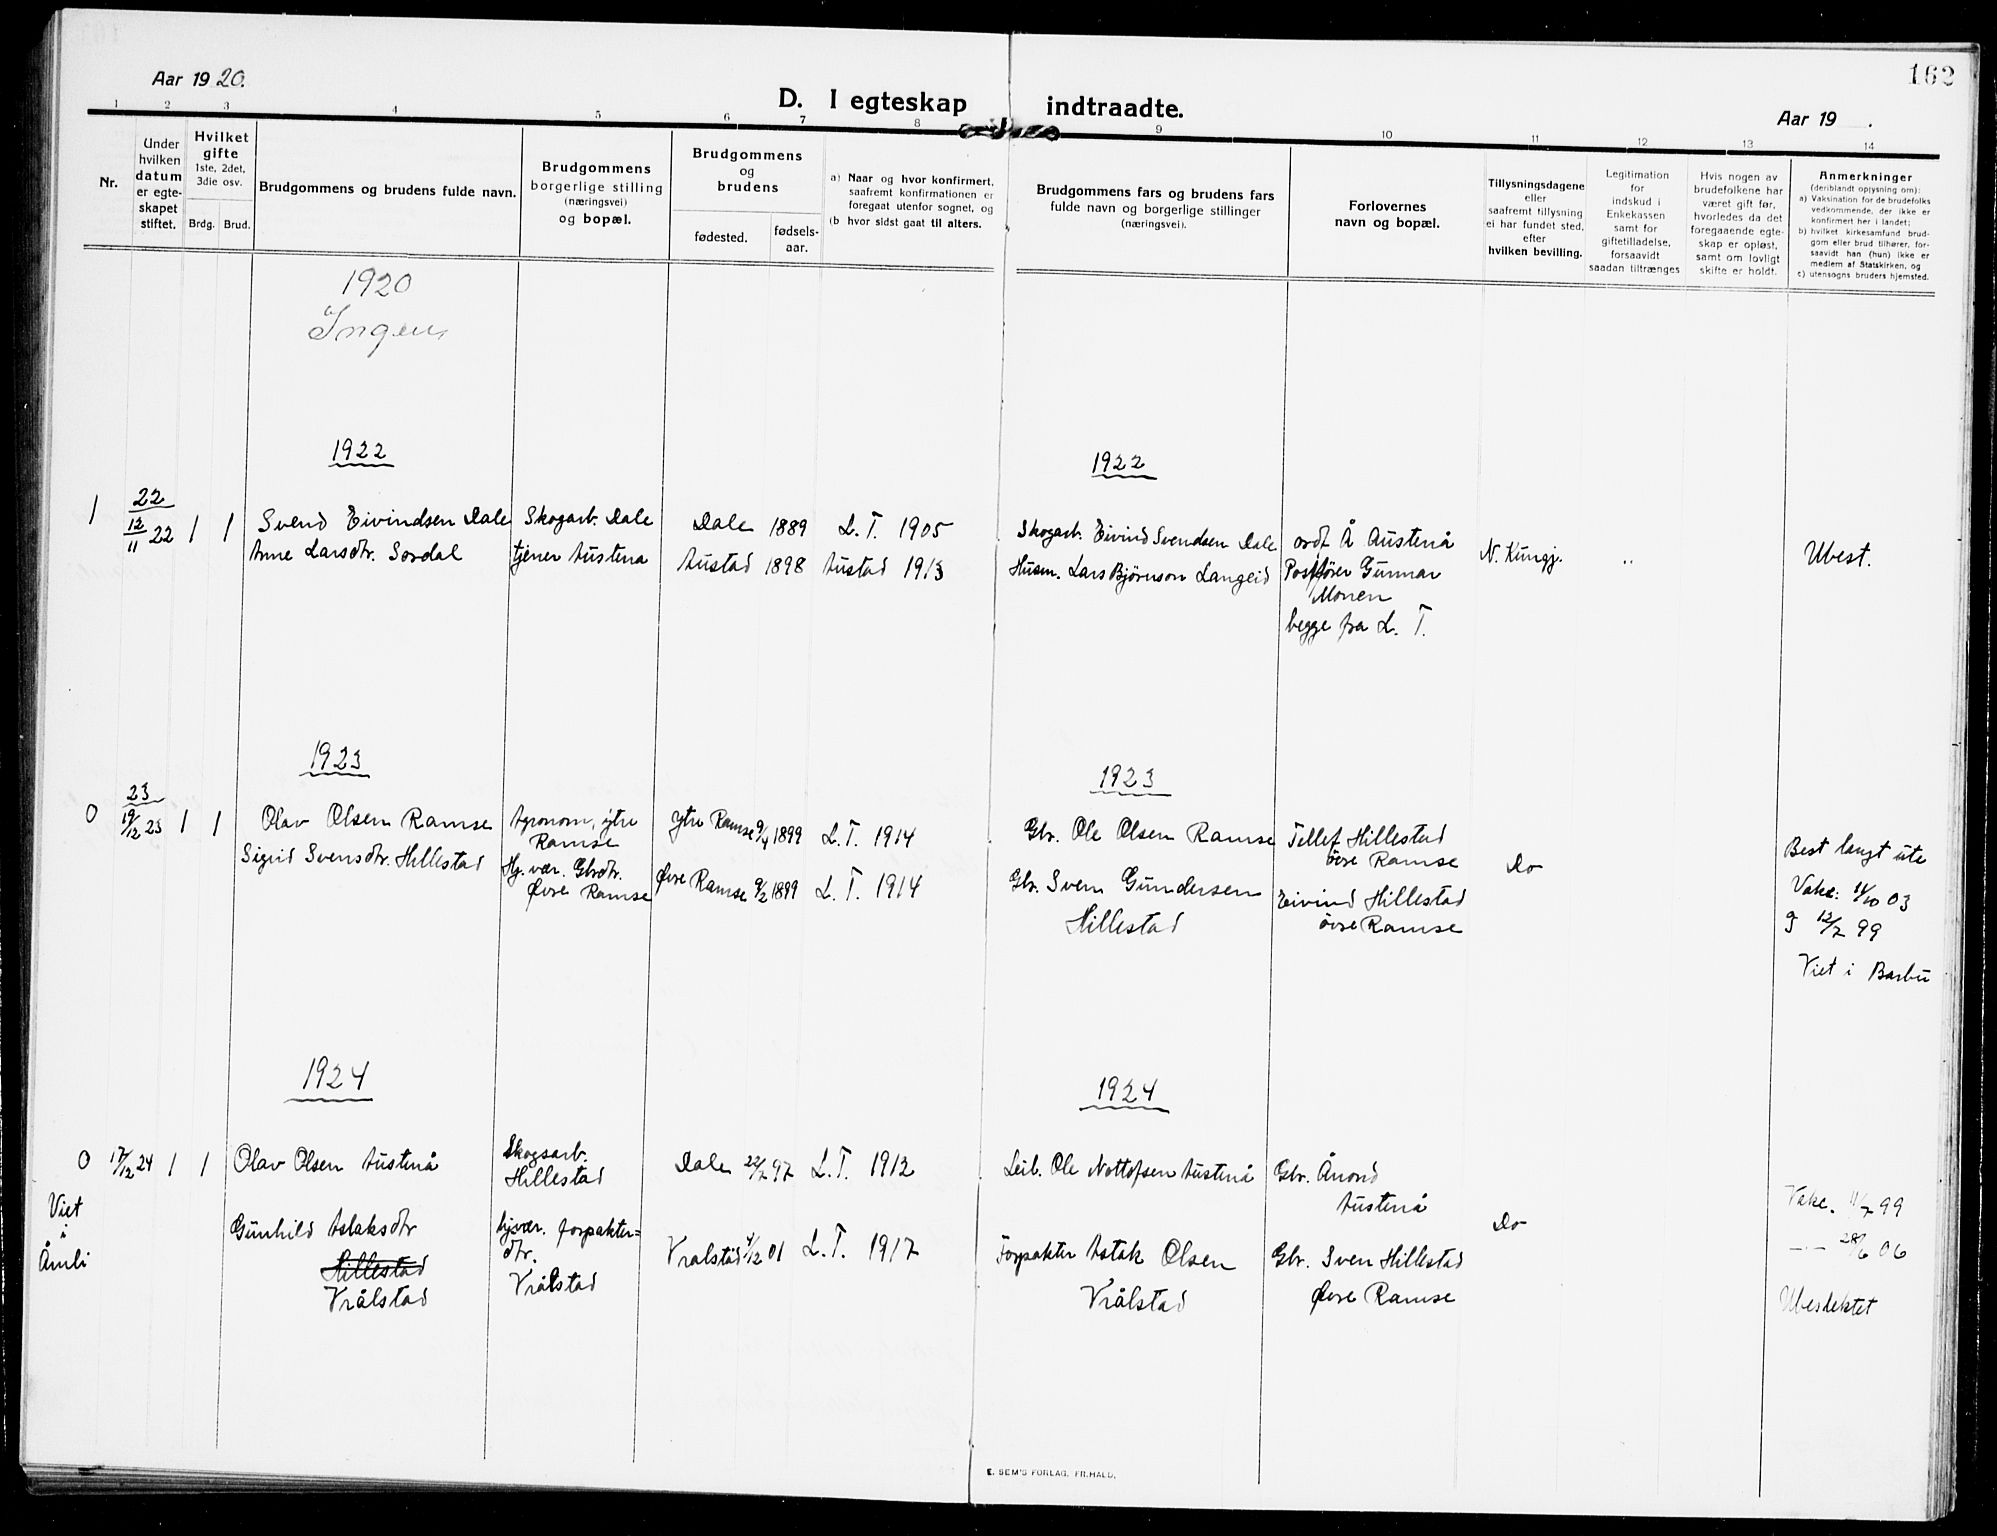 162
Aar 1920.
D. I egteskap indtraadte.
Aar 19 .
1 2 3 4 5 6 7 8 9 10 11 12 13 14
Nr.
Under
hvilken
datum
er egte-
skapet
stiftet.
Hvilket
gifte
1ste, 2det,
3die osv.
Brdg. Brud.
Brudgommens og brudens fulde navn.
Brudgommens
borgerlige stilling
(næringsvei)
og bopæl.
Brudgommens
og
brudens
fødested.
fødsels-
aar.
a) Naar og hvor konfirmert,
saafremt konfirmationen er
foregaat utenfor sognet, og
(b hvor sidst gaat til alters.
Brudgommens fars og brudens fars
fulde navn og borgerlige stillinger
(næringsvei).
Forlovernes
navn og bopæl.
Tillysningsdagene
eller
saafremt tillysning
ei har fundet sted,
efter
hvilken bevilling.
Legitimation
for
indskud i
Enkekassen
samt for
giftetilladelse,
forsaavidt
saadan tiltrænges
Hvis nogen av
brudefolkene har
været gift før,
hvorledes da det
foregaaende egte-
skap er opløst,
samt om lovligt
skifte er holdt.
Anmerkninger
(deriblandt oplysning om):
a) Vaksination for de brudefolks
vedkommende, der ikke er
konfirmert her i landet;
b) hvilket kirkesamfund brud-
gom eller brud tilhører, for-
saavidt han (hun) ikke er
medlem af Statskirken, og
c) utensogns bruders hjemsted.
1920
Ingen
1922
1922
1 22 12/11 22 1 1
Svend Eivindsen Dale
Anne Larsdtr. Sordal
Skogarb. Dale
tjener Austena
Dale 1889
Austad 1898
L. T. 1905
Austad 1913
Skogarb. Eivind Svendsen Dale
Husm. Lars Bjørnson Langeid
ordf Å Austenå
Postfører Gunnar
Monen
begge fra L. T.
N. Kungj.
"
Ubest.
1923
1923
0 23 19/12 23 1 1
Olav Olsen Ramse
Sigrid Svensdtr. Hillestad
Agronom, ytre
Ramse
Hj. vær. Gbrdtr.
Øvre Ramse
Ytre Ramse 9/4 1899
Øvre Ramse 9/2 1899
L. T. 1914
L. T. 1914
Gbr. Ole Olsen Ramse
Gbr. Sven Gundersen
Hillestad
Tellef Hillestad
övre Ramse
Eivind Hillestad
övre Ramse
Do
Best langt ute
Vake: 11/10 03
g 12/7 99
Viet i Barbu
1924
1924
0 17/12 24 1 1
Viet
i
Åmli
Olav Olsen Austenå
Gunhild Aslaksdtr
Hillestad
Vrålstad
Skogsarb.
Hillestad
hjvær. forpakter=
dtr.
Vrålstad
Dale 22/7 97
Vralstad 4/12 01
L. T. 1912
L. T. 1917
Leib. Ole Nottofsen Austenå
Forpakter Aslak Olsen
Vrålstad
Gbr. Ånond
Austenå
Gbr. Sven Hillestad
Øvre Ramse
Do
Vake. 11/7 99
—"— 28/6 06
Ubesluktet
E. SEM'S FORLAG, FR.HALD.